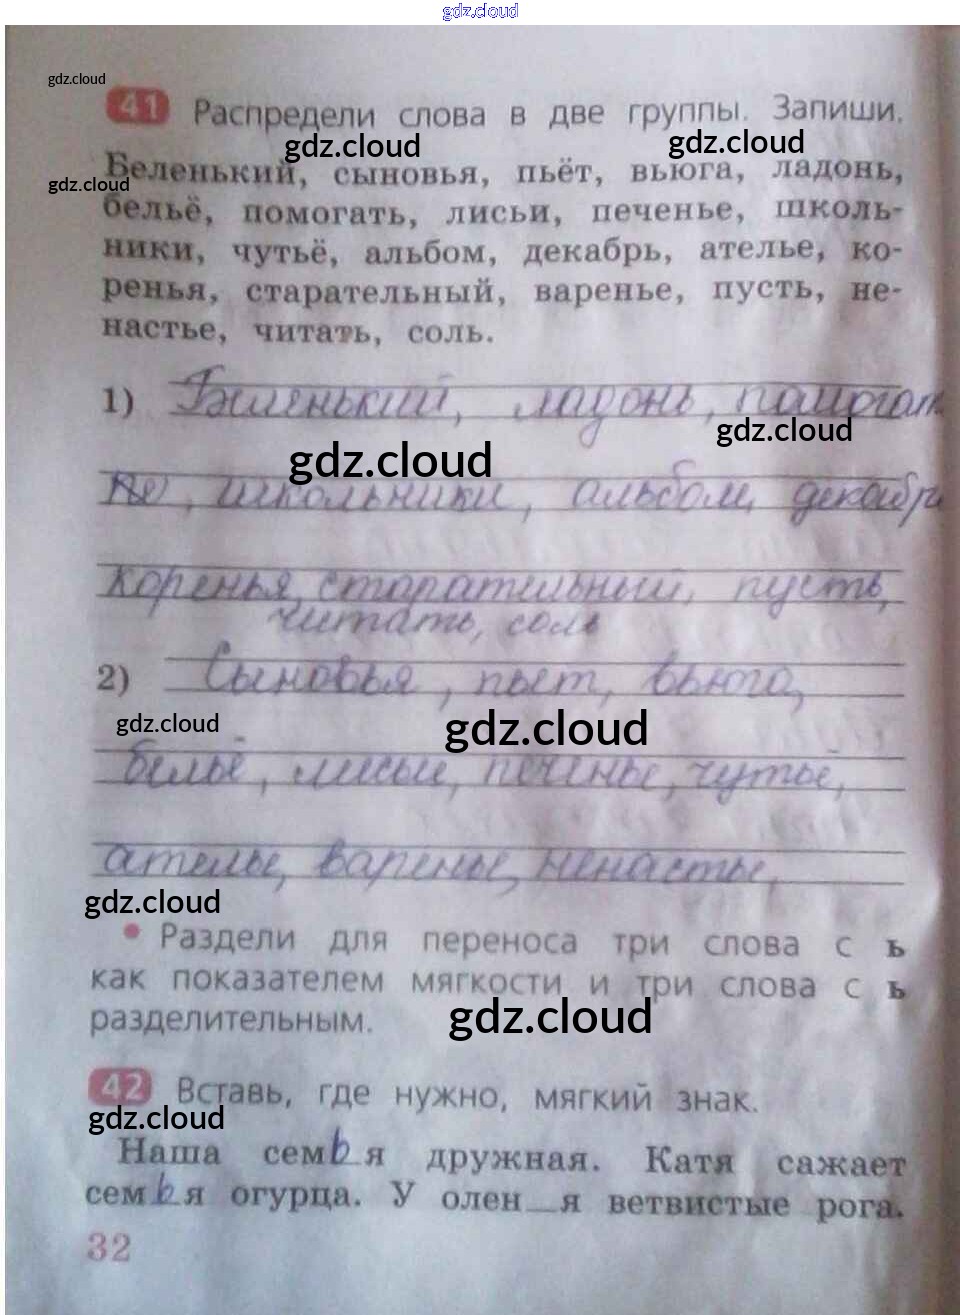 gdz.cloud
gdz.cloud
41 Распредели слова в две группы. Запиши.
gdz.cloud gdz.cloud
Беленький, сыновья, пьёт, вьюга, ладонь,
gdz.cloud
бельё, помогать, лисьи, печенье, школь-
ники, чутьё, альбом, декабрь, ателье, ко-
ренья, старательный, варенье, пусть, не-
настье, читать, соль.
1) Беленький, ладонь, помогать
gdz.cloud
gdz.cloud
, школьники, альбом, декабрь
коренья, старательный, пусть,
читать, соль
2) Сыновья, пьет, вьюга,
gdz.cloud gdz.cloud
бельё, лисьи, печенье, чутьё,
ателье, варенье, ненастье,
gdz.cloud
• Раздели для переноса три слова с ь
как показателем мягкости и три слова с ь
разделительным.
gdz.cloud
42 Вставь, где нужно, мягкий знак.
gdz.cloud
Наша семь_я дружная. Катя сажает
семь_я огурца. У олен_я ветвистые рога.
32